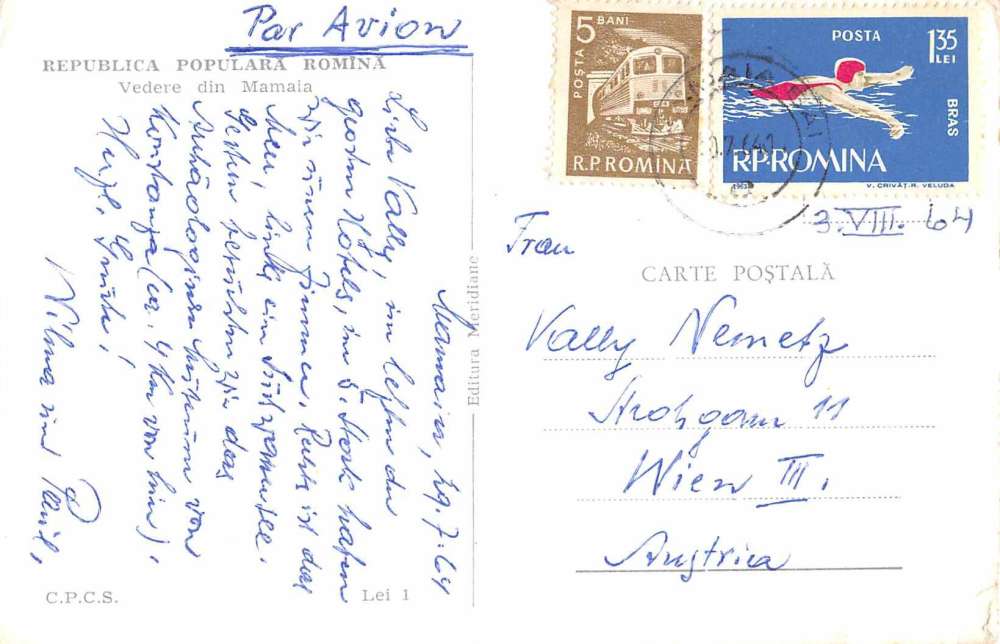 Par Avion
REPUBLICA POPULARA ROMÎNĂ
Vedere din Mamaia
Mamaia, 29.7.64
Liebe Vally, im letzten der
großen Hotels, im 5. Stock haben
wir unser Zimmer. Rechts ist das
Meer, links ein Süßwassersee.
Gestern besuchten wir das
Archäologische Museum von
Konstanza (ca. 4 km von hier).
Herzl. Grüße!
Wilma und Paul.
Editura Meridiane
C.P.C.S.
Lei 1
5 BANI
POSTA
R.P.ROMINA
POSTA
1 35
LEI
BRAS
R.P.ROMINA
1963
V. CRIVĂȚ, R. VELUDA
3.VIII.64
CARTE POȘTALĂ
Frau
Vally Nemetz
Strohgasse 11
Wien III.
Austria